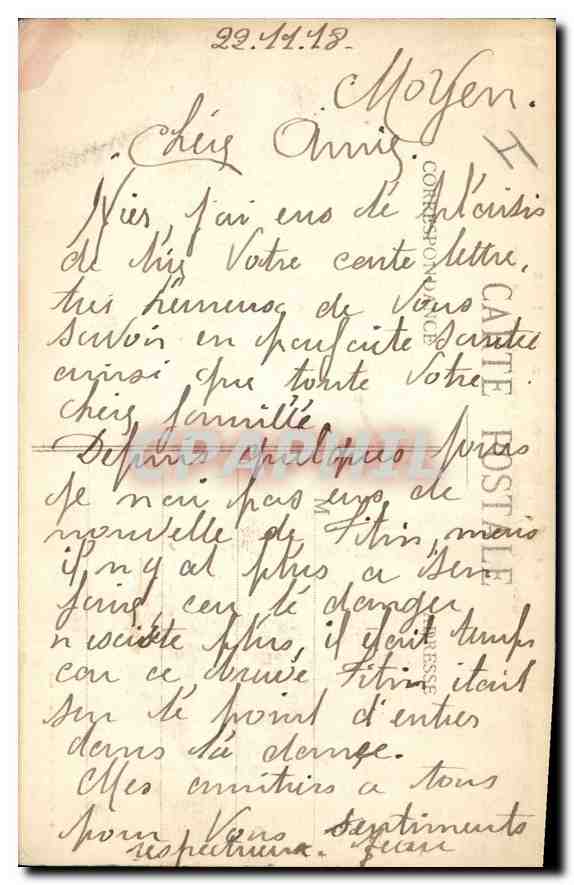 22.11.18.
Moyen.
Chère Amie.
Hier, j'ai eus lé plaisir
de lire Votre carte lettre,
très heureux de Vous
savoir en parfaite santée
ainsi que toute Votre
chère famille
Depuis quelques jours
je n'ai pas eus de
nouvelle de Titin, mais
il n'y at plus a s'en
faire, car lé danger
n'existe plus, il était temps
car ce brave Titin était
sur lé point d'entrer
dans la danse.
Mes amitiers a tous
pour Vous sentiments
respectueux. Jean
CARTE POSTALE
CORRESPONDANCE
ADRESSE
M
CPAPHIL